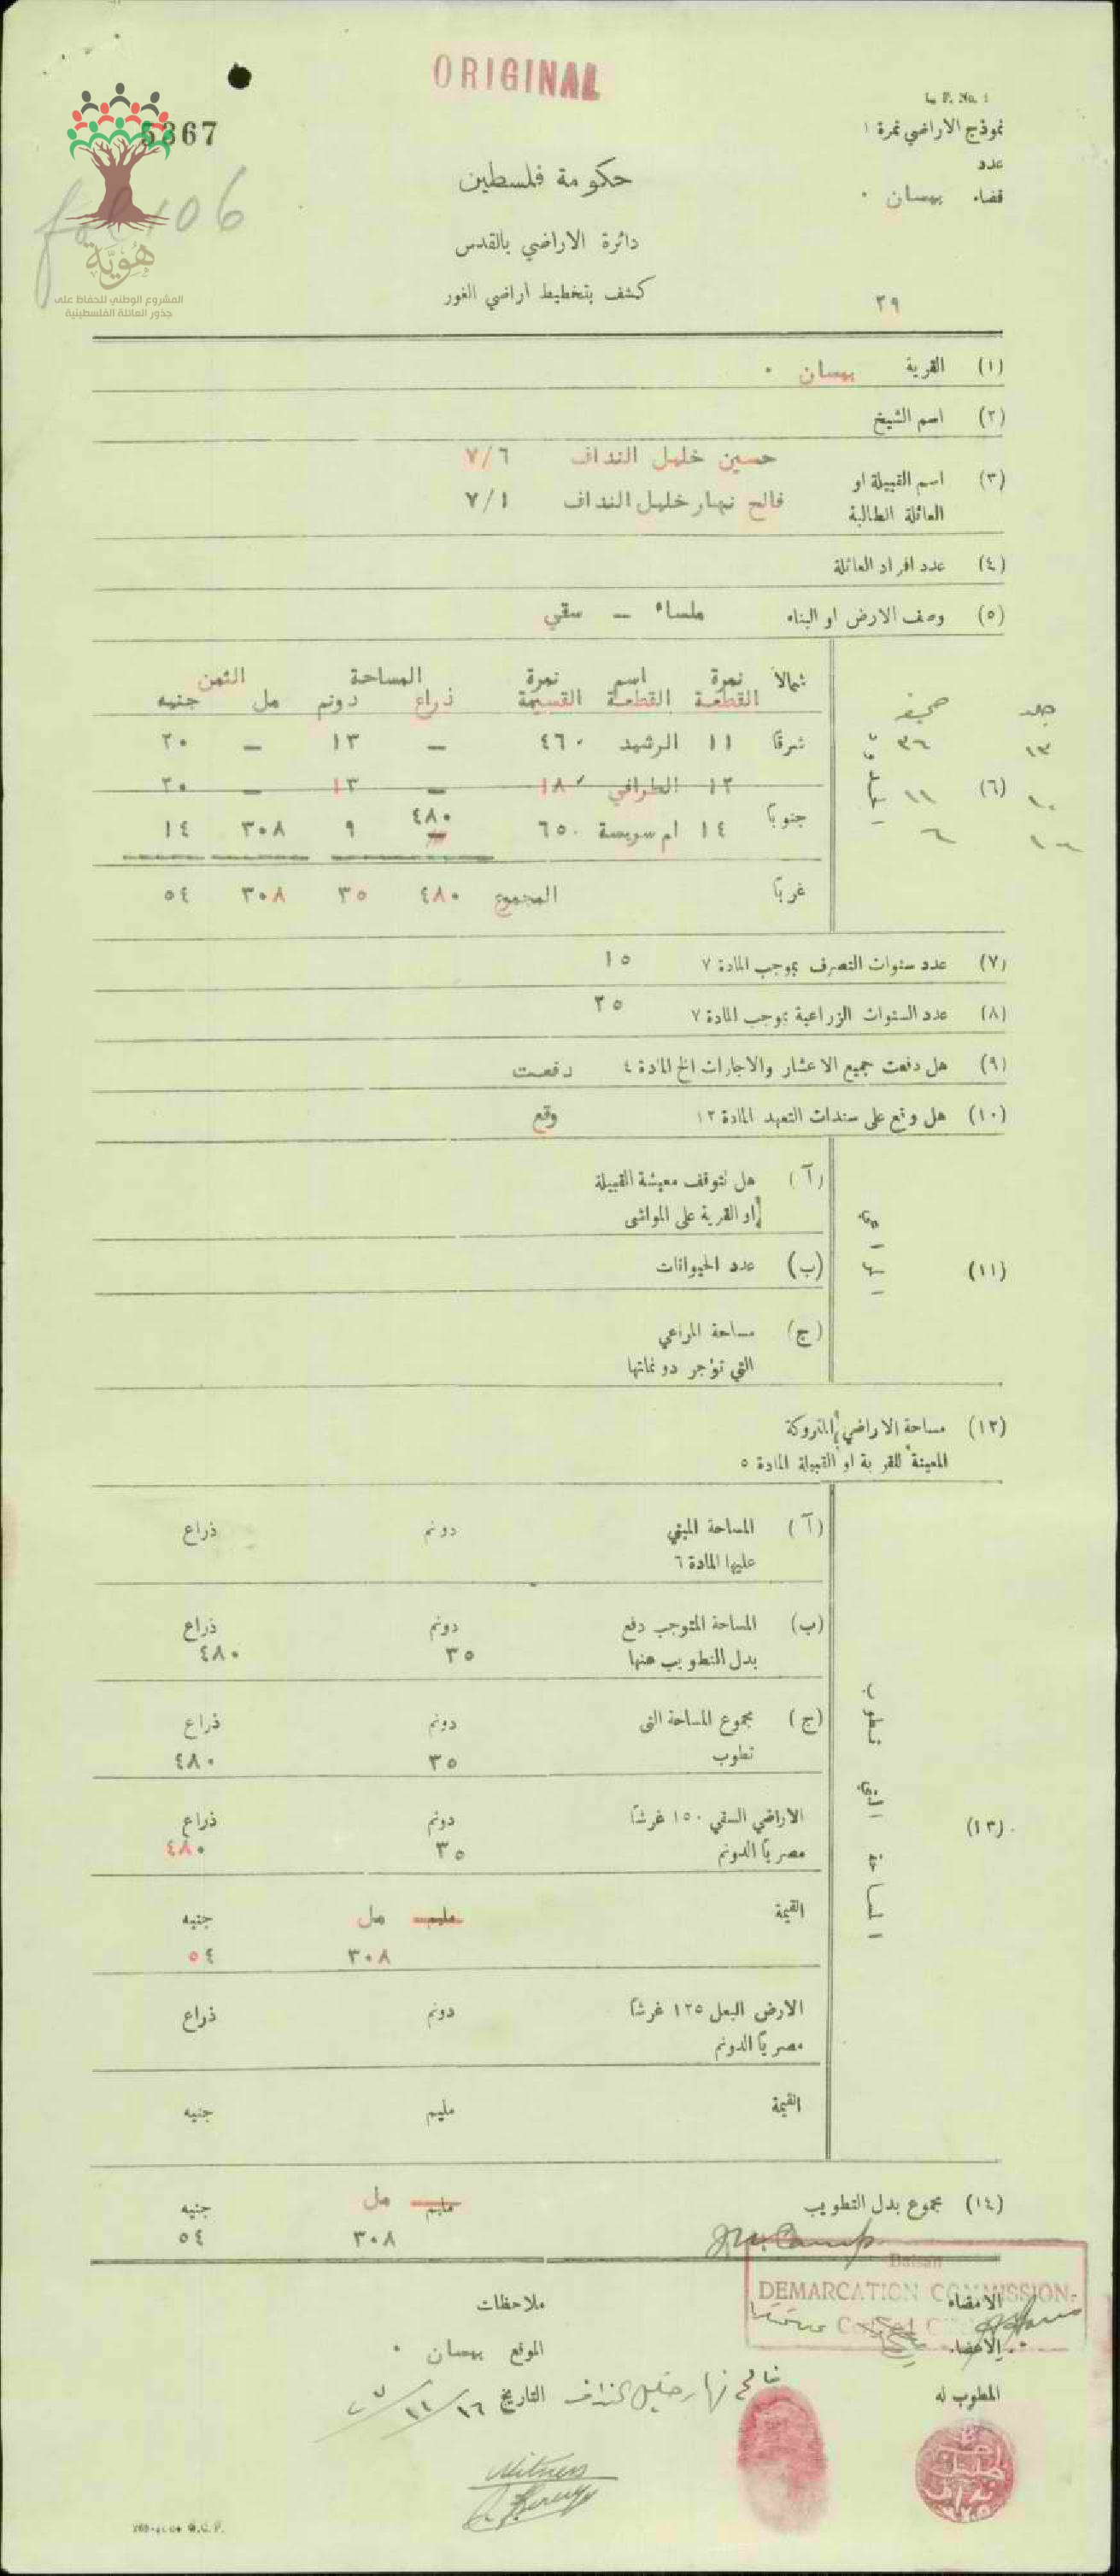 ORIGINAL
L. P. No. 1
نموذج الاراضي نمرة ١
5367
عدد
حكومة فلسطين
قضاء بيسان ٠
106
دائرة الاراضي بالقدس
كشف بتخطيط اراضي الغور
٢٩
هُوِيَّة
المشروع الوطني للحفاظ على
جذور العائلة الفلسطينية
(١) القرية بيسان ٠
(٢) اسم الشيخ
(٣) اسم القبيلة او العائلة الطالبة
حسين خليل النداف ٧/٦
فالح نهار خليل النداف ٧/١
(٤) عدد افراد العائلة
(٥) وصف الارض او البناء ملساء – سقي
شمالاً نمرة القطعة اسم القطعة نمرة القسيمة المساحة ذراع دونم الثمن مل جنيه
جلد صحيفة
١٣ ٣٦ شرقاً ١١ الرشيد ٤٦٠ – ١٣ – ٢٠
(٦) ١٠ ١١ ١٢ الطرافي ١٨ – ١٣ – ٢٠
١٦ ٦ جنوباً ١٤ ام سريسة ٦٥٠ ٤٨٠ ٩ ٣٠٨ ١٤
غرباً المجموع ٤٨٠ ٣٥ ٣٠٨ ٥٤
(٧) عدد سنوات التصرف بموجب المادة ٧ ١٥
(٨) عدد السنوات الزراعية بموجب المادة ٧ ٢٥
(٩) هل دفعت جميع الاعشار والاجارات الخ المادة ٤ دفعت
(١٠) هل وقع على سندات التعهد المادة ١٢ وقع
(١١)
(آ) هل تتوقف معيشة القبيلة
او القرية على المواشي
(ب) عدد الحيوانات
(ج) مساحة المراعي
التي تؤجر دونماتها
(١٢) مساحة الاراضي المتروكة
المعينة للقرية او القبيلة المادة ٥
(١٣) المساحة التي تطوب
(آ) المساحة المبني دونم ذراع
عليها المادة ٦
(ب) المساحة المتوجب دفع دونم ذراع
بدل التطويب عنها ٣٥ ٤٨٠
(ج) مجموع المساحة التي دونم ذراع
تطوب ٣٥ ٤٨٠
الاراضي السقي ١٥٠ غرشاً دونم ذراع
مصرياً الدونم ٣٥ ٤٨٠
القيمة مليم مل جنيه
٣٠٨ ٥٤
الارض البعل ١٢٥ غرشاً دونم ذراع
مصرياً الدونم
القيمة مليم جنيه
(١٤) مجموع بدل التطويب مليم مل جنيه
٣٠٨ ٥٤
Baisan
DEMARCATION COMMISSION
الامضاء
ملاحظات
الاعضاء
الموقع بيسان ٠
المطوب له
فالح نهار خليل النداف
التاريخ ١٦/١١/
Witness